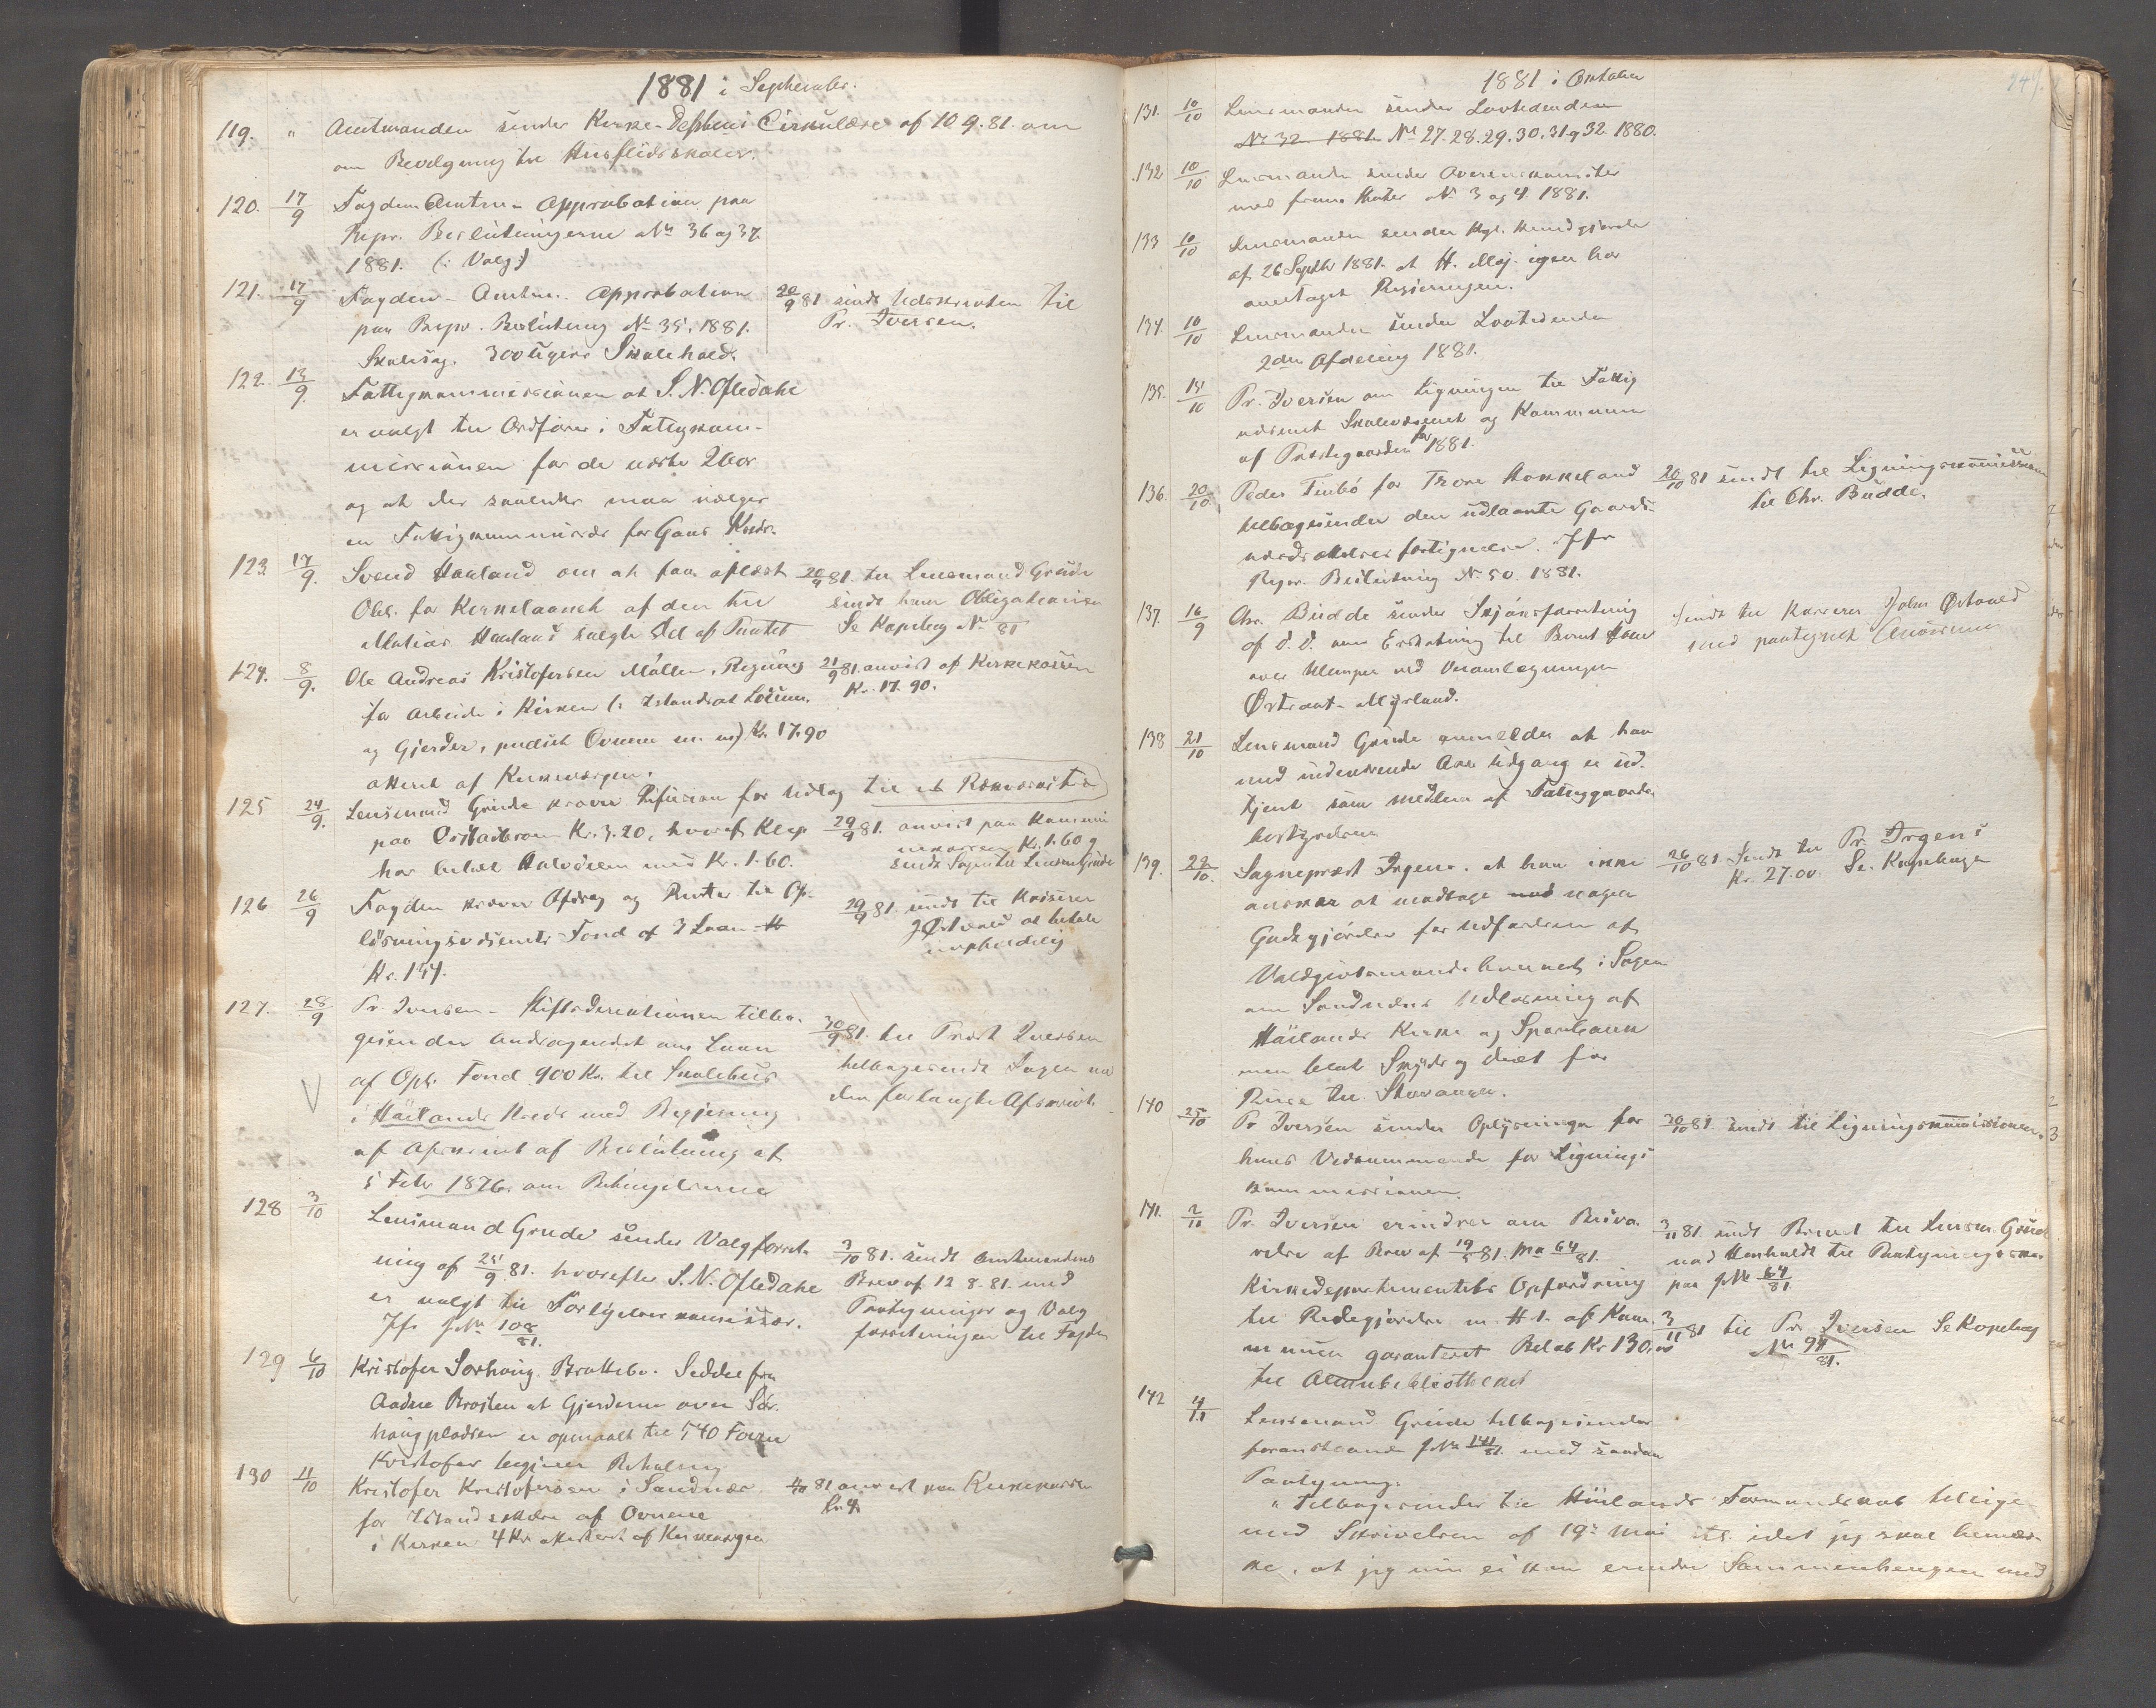 1881 i September.
119. " Amtmanden sender Kirke-Depbens Cirkulære af 10 9. 81. om
om Bevilgning til Husflidsskoler.
120. 17/9 Fogden Amtm. Approbation paa
Repr. Beslutningerne No 36 og 37
1881. (: Valg:)
121. 17/9 Fogden - Amtm. Approbation
paa Repr. Beslutning No 35, 1881.
Skolesag. 300 ugers Skolehold.
20/9 81 sendt Udskriften til
Pr. Iversen.
122. 13/9 Fattigkommissionen at S. N. Ofledahl
er valgt til Ordfører i Fattigkom-
missionen for de næste 2 Aar
og at der saaledes maa vælges
en Fattigkommissær for Gans Kreds.
123. 17/9. Svend Haaland om at faa aflæst
Obl. for Kirkelaanet af den til
Mathias Haaland solgte Del af
20/9 81. til Lensmand Grude
sendt ham Obligationen
Se Kopibog No 81
124. 8/9. Ole Andreas Kristofersen Møllen, Regning
for Arbeide i Kirken (: Istandsat
og Gjerder, pudset Ovnene m m) Kr. 17.90
attest. af Kirkeværgen.
21/9 81 anvist af Kirkekassen
Kr. 17. 90.
125 24/9. Lensmand Grude kræver Refusion for Udlæg til
paa Kr. 3.20, hvoraf Klep
har betalt Halvdelen med Kr. 1.60.
29/9 81. anvist paa Kommu
nekassen Kr. 1.60 g
sendt Sagen til Lensm Grude
126 26/9 Fogden kræver Afdrag og Renter til Op-
lysningsvæsenets Fond af 3 Laan
Kr. 154.
29/9 81. sendt til Kasserer
J Østvold at betale
uopholdelig
127. 28/9 Pr. Iversen - Stiftsdirektionen tilba-
gesender Andragendet om Laan
af Opl. Fond 900 Kr. til Skolehus
i Høilands Kreds med Begjæring
af Afskrivt af Beslutning af
5 Febr 1876. om Betingelserne
30/9 81. til Provst Iversen
tilbagesendt Sagen med
den forlangte Afskrivt.
128 3/10 Lensmand Grude sender Valgforret-
ning af 25/9 81. hvorefter S. N. Ofledahl
er valgt til Forligelseskommissær.
Jfr JNo 108/81.
3/10 81. sendt Amtmandens
Brev af 12 8. 81. med
Paategninger og Valg
forretningen til Fogden
129 6/10 Kristofer Sørhaug Brattebo. Seddel fra
Aadne Brosten at Gjerderne over Sør-
haugpladsen er opmaalt til 540 Favne
Kristofer begjærer Betaling
130 11/10 Kristofer Kristofersen i Sandnæs
for Istandsættelse af Ovnene
i Kirken 4 Kr attesteret af Kirkeværgen
81 anvist paa Kirkekassen
Kr 4
1881 i Oktober
131. 10/10 Lensmanden sender Lovtidenden
No 32 1881. No 27. 28. 29. 30. 31 g 32. 1880.
132 10/10 Lensmanden sender
No 3 og 4 1881.
133 10/10 Lensmanden sender Kgl. Kundgjørelse
af 26 Septbr 1881. at H. Maj. igjen har
overtaget Regjeringen.
134. 10/10 Lensmanden sender Lovtidenden
2den Afdeling 1881.
135. 15/10 Pr. Iversen om Ligningen til Fattig
væsenet Skolevæsenet og Kommunen
af Præstegaarden for 1881.
136. 20/10. Peder Tinbø for Tore Hakkeland
tilbagesender den udlaante Gaards-
Jfr
Repr. Beslutning No 50. 1881.
20/10 81 sendt til Ligningskommissionen
til Chr. Budde.
137. 16/9 Chr. Budde sender Skjønsforretning
af d. d. om Erstatning til Bernt
over Ulemper ved Veiomlægningen
- Myrland.
sendt til Kasserer John Østvold
med paategnet
138 21/10 Lensmand Grude anmelder at han
med indeværende Aars Udgang er ud-
tjent som Medlem af Fattiggaards
bestyrelsen
139. 22/10. Sognepræst Irgens. at han ikke
ønsker at modtage nogen
Godtgjørelse for Udførelsen af
Voldgivtsmandshvervet i Sagen
om Sandnæs Udløsning af
Høilands Kirke og Sparebank
men blot Skyds og diæt for
Reise til Stavanger.
26/10 81. Sendt til Pr. Irgens
Kr. 27.00. Se Kopibogen
140 25/10 Pr Iversen sender Oplysninger for
hans Vedkommende for Lignings
kommissionen
30/10 81. sendt til Ligningskommissionen.
141. 2/11 Pr. Iversen erindrer om Besva-
relse af Brev af 19/5 81. No 64/81.
Kirkedepartementets Opfordring
til Redegjørelse m. H. t. af Kom-
munen garanteret Beløb Kr 130.00
til Almuebibliotheket
3/11 81 sendt Brevet til Lensm. Grude
med Henhold til Paategningerne
paa JNo 64/81
3/11 81 til Pr Iversen Se Kopibog
No 94/81.
142 4/11 Lensmand Grude tilbagesender
foranstaaende JNo 141/81 med saadan
Paategning.
"Tilbagesendes til Høilands Formandskab tillige
med Skrivelsen af 19de Mai idet jeg skal bemær-
ke, at jeg nu ei kan erindre Sammenhengen med